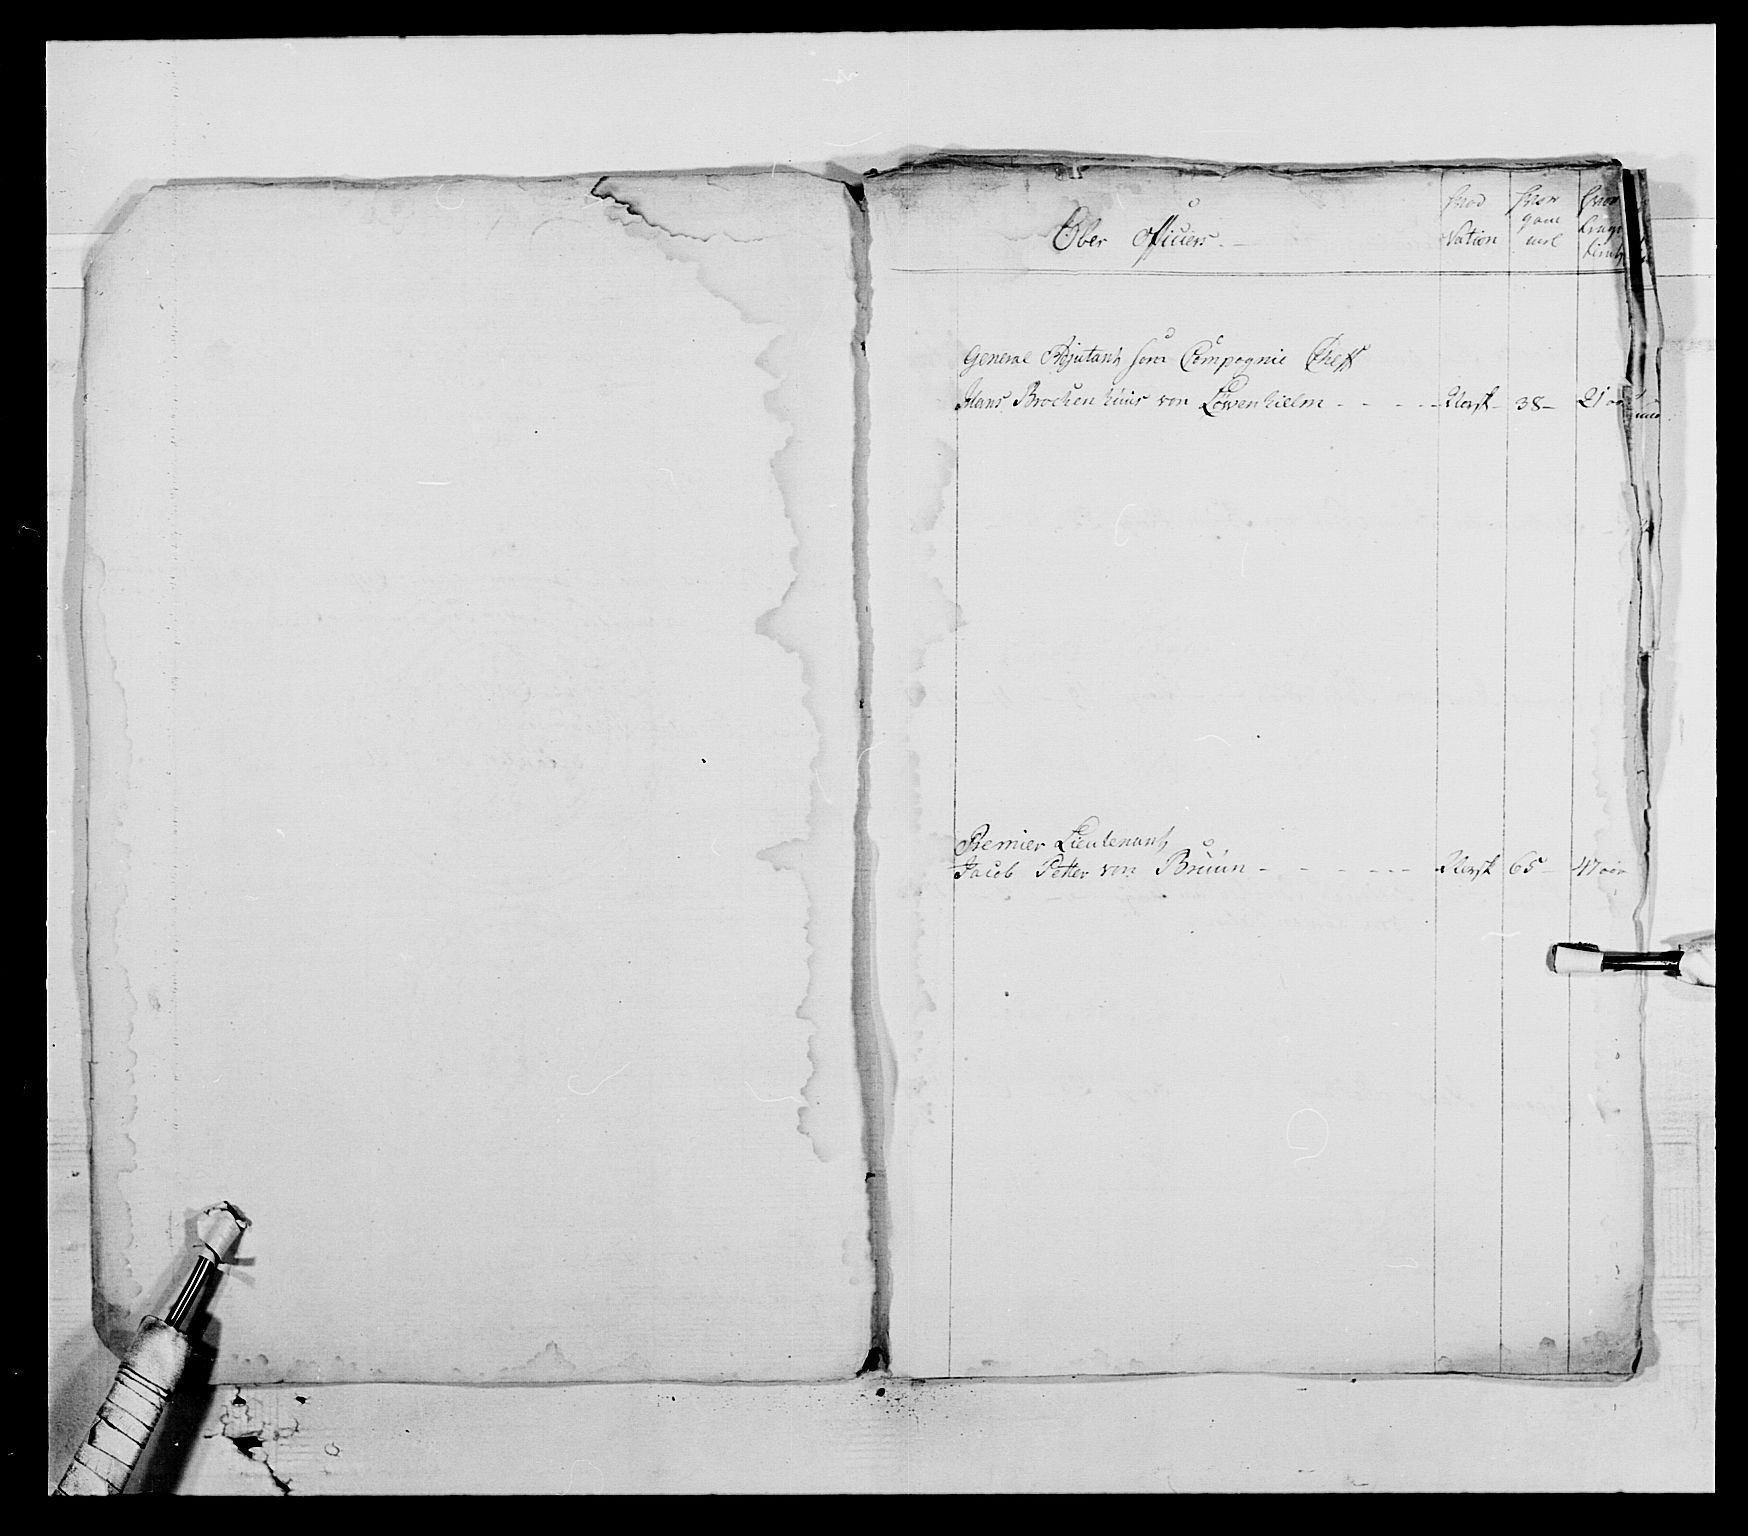 Ober Officiers.
Hvad Nation
Hvor gam mel
Hvor Lenge tient
General Adjutant som Compagnie Cheff
Hans Brochenhuus von Löwenhielm - - - - - Norsk - 38 - 21 aar
Premier Lieutenant
Jacob Petter von Bruun - - - - - - Norsk 65 - 47 aar